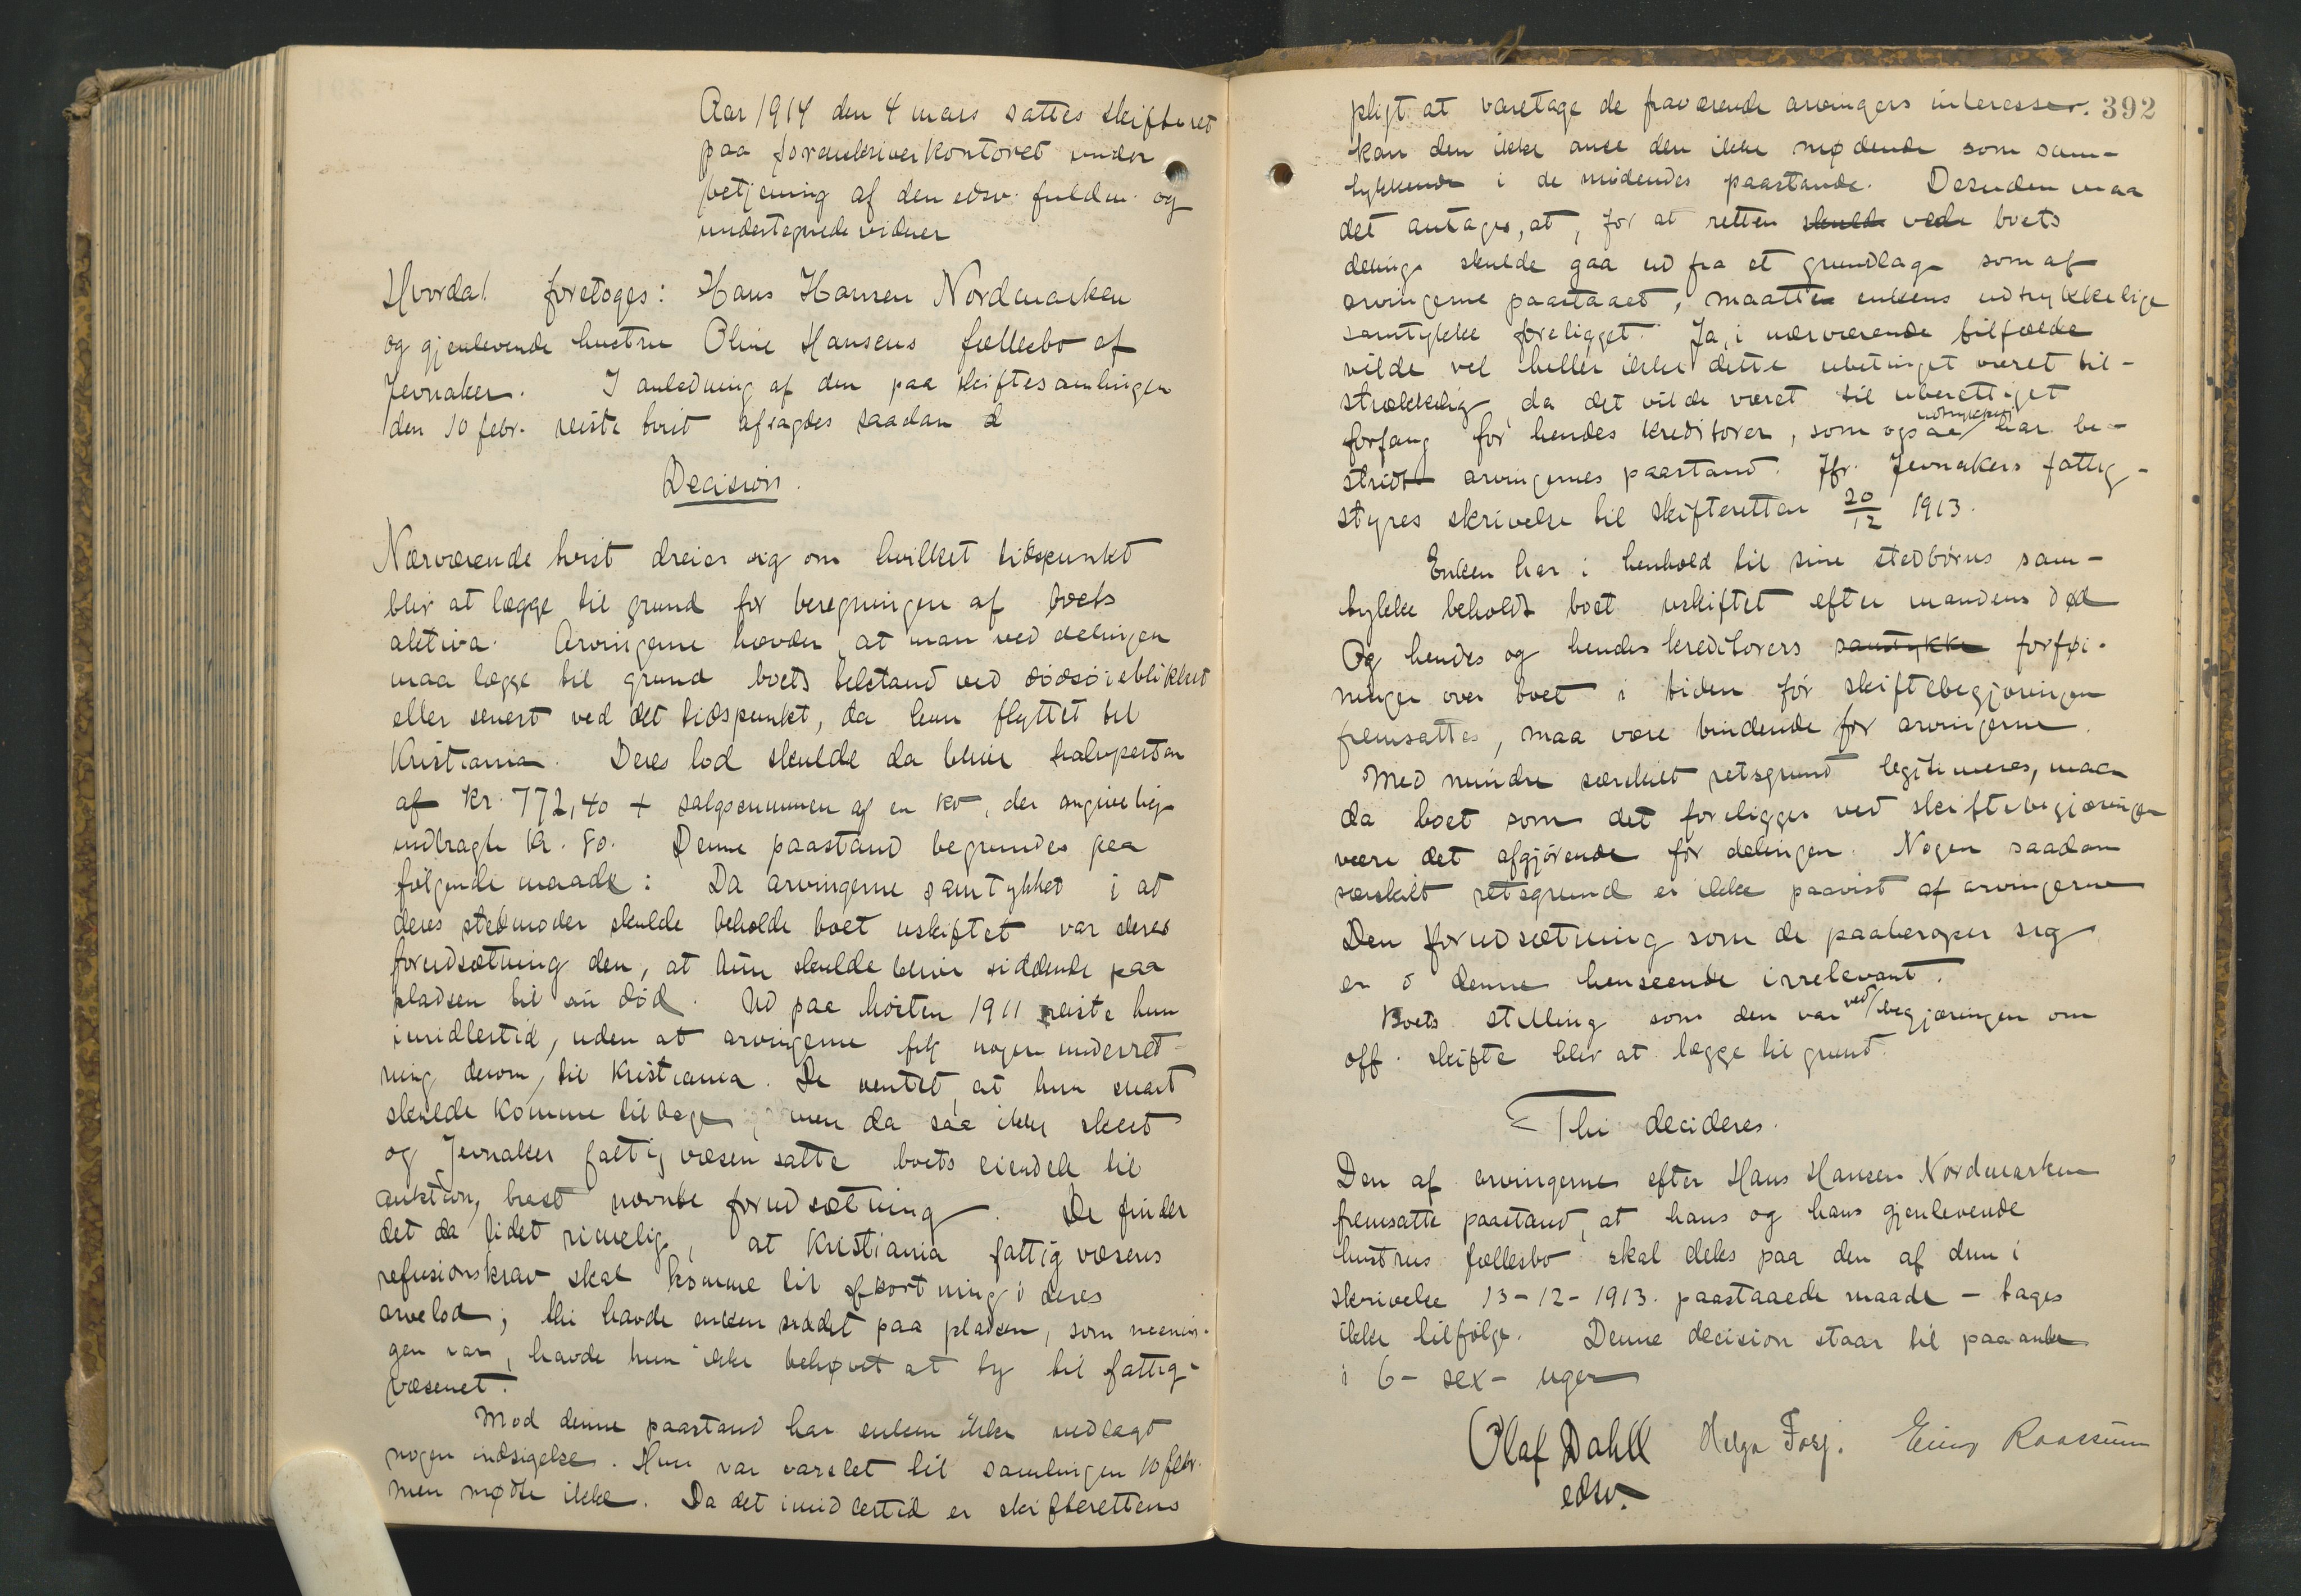 Aar 1914 den 4 mars sattes skifteret
paa sorenskriverkontoret under
betjening af den edsv. fuldm. og
undertegnede vidner
Hvorda! foretoges: Hans Hansen Nordmarken
og gjenlevende hustru Oline Hansens fællesbo af
Jevnaker. I anledning af den paa skiftesamlingen
den 10 febr. reiste tvist afsagdes saadan d
Decision.
Nærværende tvist dreier sig om hvilket tidspunkt
blir at lægge til grund for beregningen af boets
aktiva. Arvingerne hævder at man ved delingen
maa lægge til grund boets tilstand ved dødsøieblikket
eller senest ved det tidspunkt, da hun flyttet til
Kristiania. Deres lod skulde da bliver halvparten
af kr. 772,40 + salgssummen af en ko, der angivelig
indbragte kr. 80. Denne paastand begrundes paa
følgende maade: Da arvingerne samtykket i at
deres stedmoder skulde beholde boet uskiftet var deres
forudsætning den, at hun skulde blive siddende paa
pladsen til sin død. Ud paa høsten 1911 reiste hun
imidlertid, uden at arvingerne fik nogen underret-
ning derom, til Kristiania. De ventet, at hun snart
skulde komme tilbage, men da saa ikke skeet
og Jevnaker fattigvæsen satte boets eiendele til
auktion, brast nævnte forudsætning. De finder
det da lidet rimelig, at Kristiania fattigvæsens
refusionskrav skal komme til afkortning i deres
arvelod; thi havde enken siddet paa pladsen, som meenin-
gen var, havde hun ikke behøvet at ty til fattig-
væsenet.
Mod denne paastand har enken ikke nedlagt
nogen indsigelse. Hun var varslet til samlingen 10 febr.
men mødte ikke. Da det imidlertid er skifterettens
392
pligt at varetage de fraværende arvingers interesser.
kan den ikke anse den ikke mødende som sam-
tykkende i de mødendes paastande. Desuden maa
det antages, at, for at retten skulde vede boets
deling skulde gaa ud fra et grundlag som af
arvingerne paastaaet, maatte enkens udtrykkelige
samtykke foreligget. Ja, i nærværende tilfælde
vilde vel heller ikke dette ubetinget været til-
strækkelig da det vilde været til uberettiget
forfang for hendes kreditorer, som ogsaa har be-
stridt arvingernes paastand. Jfr. Jevnakers fattig-
styres skrivelse til skifteretten 20/12 1913.
Enken har i henhold til sine stedbørns sam-
tykke beholdt boet uskiftet efter mandens død
Og hendes og hendes kreditorers samtykke forføi-
ninger over boet i tiden før skiftebegjæringen
fremsattes, maa være bindende for arvingerne.
Med mindre særskilt retsgrund legitimeres, maa
da boet som det foreligger ved skiftebegjæringen
være det afgjørende for delingen. Nogen saadan
særskilt retsgrund er ikke paavist af arvingerne
Den forudsætning som de paaberoper sig
er i denne henseende irrelevant.
Boets stilling som den var ved begjæringen om
off. skifte blir at lægge til grund.
Thi decideres.
Den af arvingerne efter Hans Hansen Nordmarken
fremsatte paastand, at hans og hans gjenlevende
hustrus fællesbo skal deles paa den af dem i
skrivelse 13-12-1913. paastaaede maade – tages
ikke tilfølge. Denne decision staar til paaanke
i 6 – sex – uger
Olaf Dahll Helga Fosj. Einar Raassum
edsv.